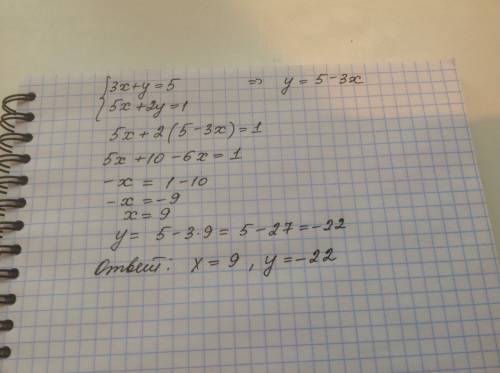 {3x+y=5 => y=5-3x
{5x+2y=1
5x+2(5-3x)=1
5x+10-6x=1
-x = 1-10
-x=-9
x=9
y= 5-3·9= 5-27=-22
Ответ: x=9, y=-22